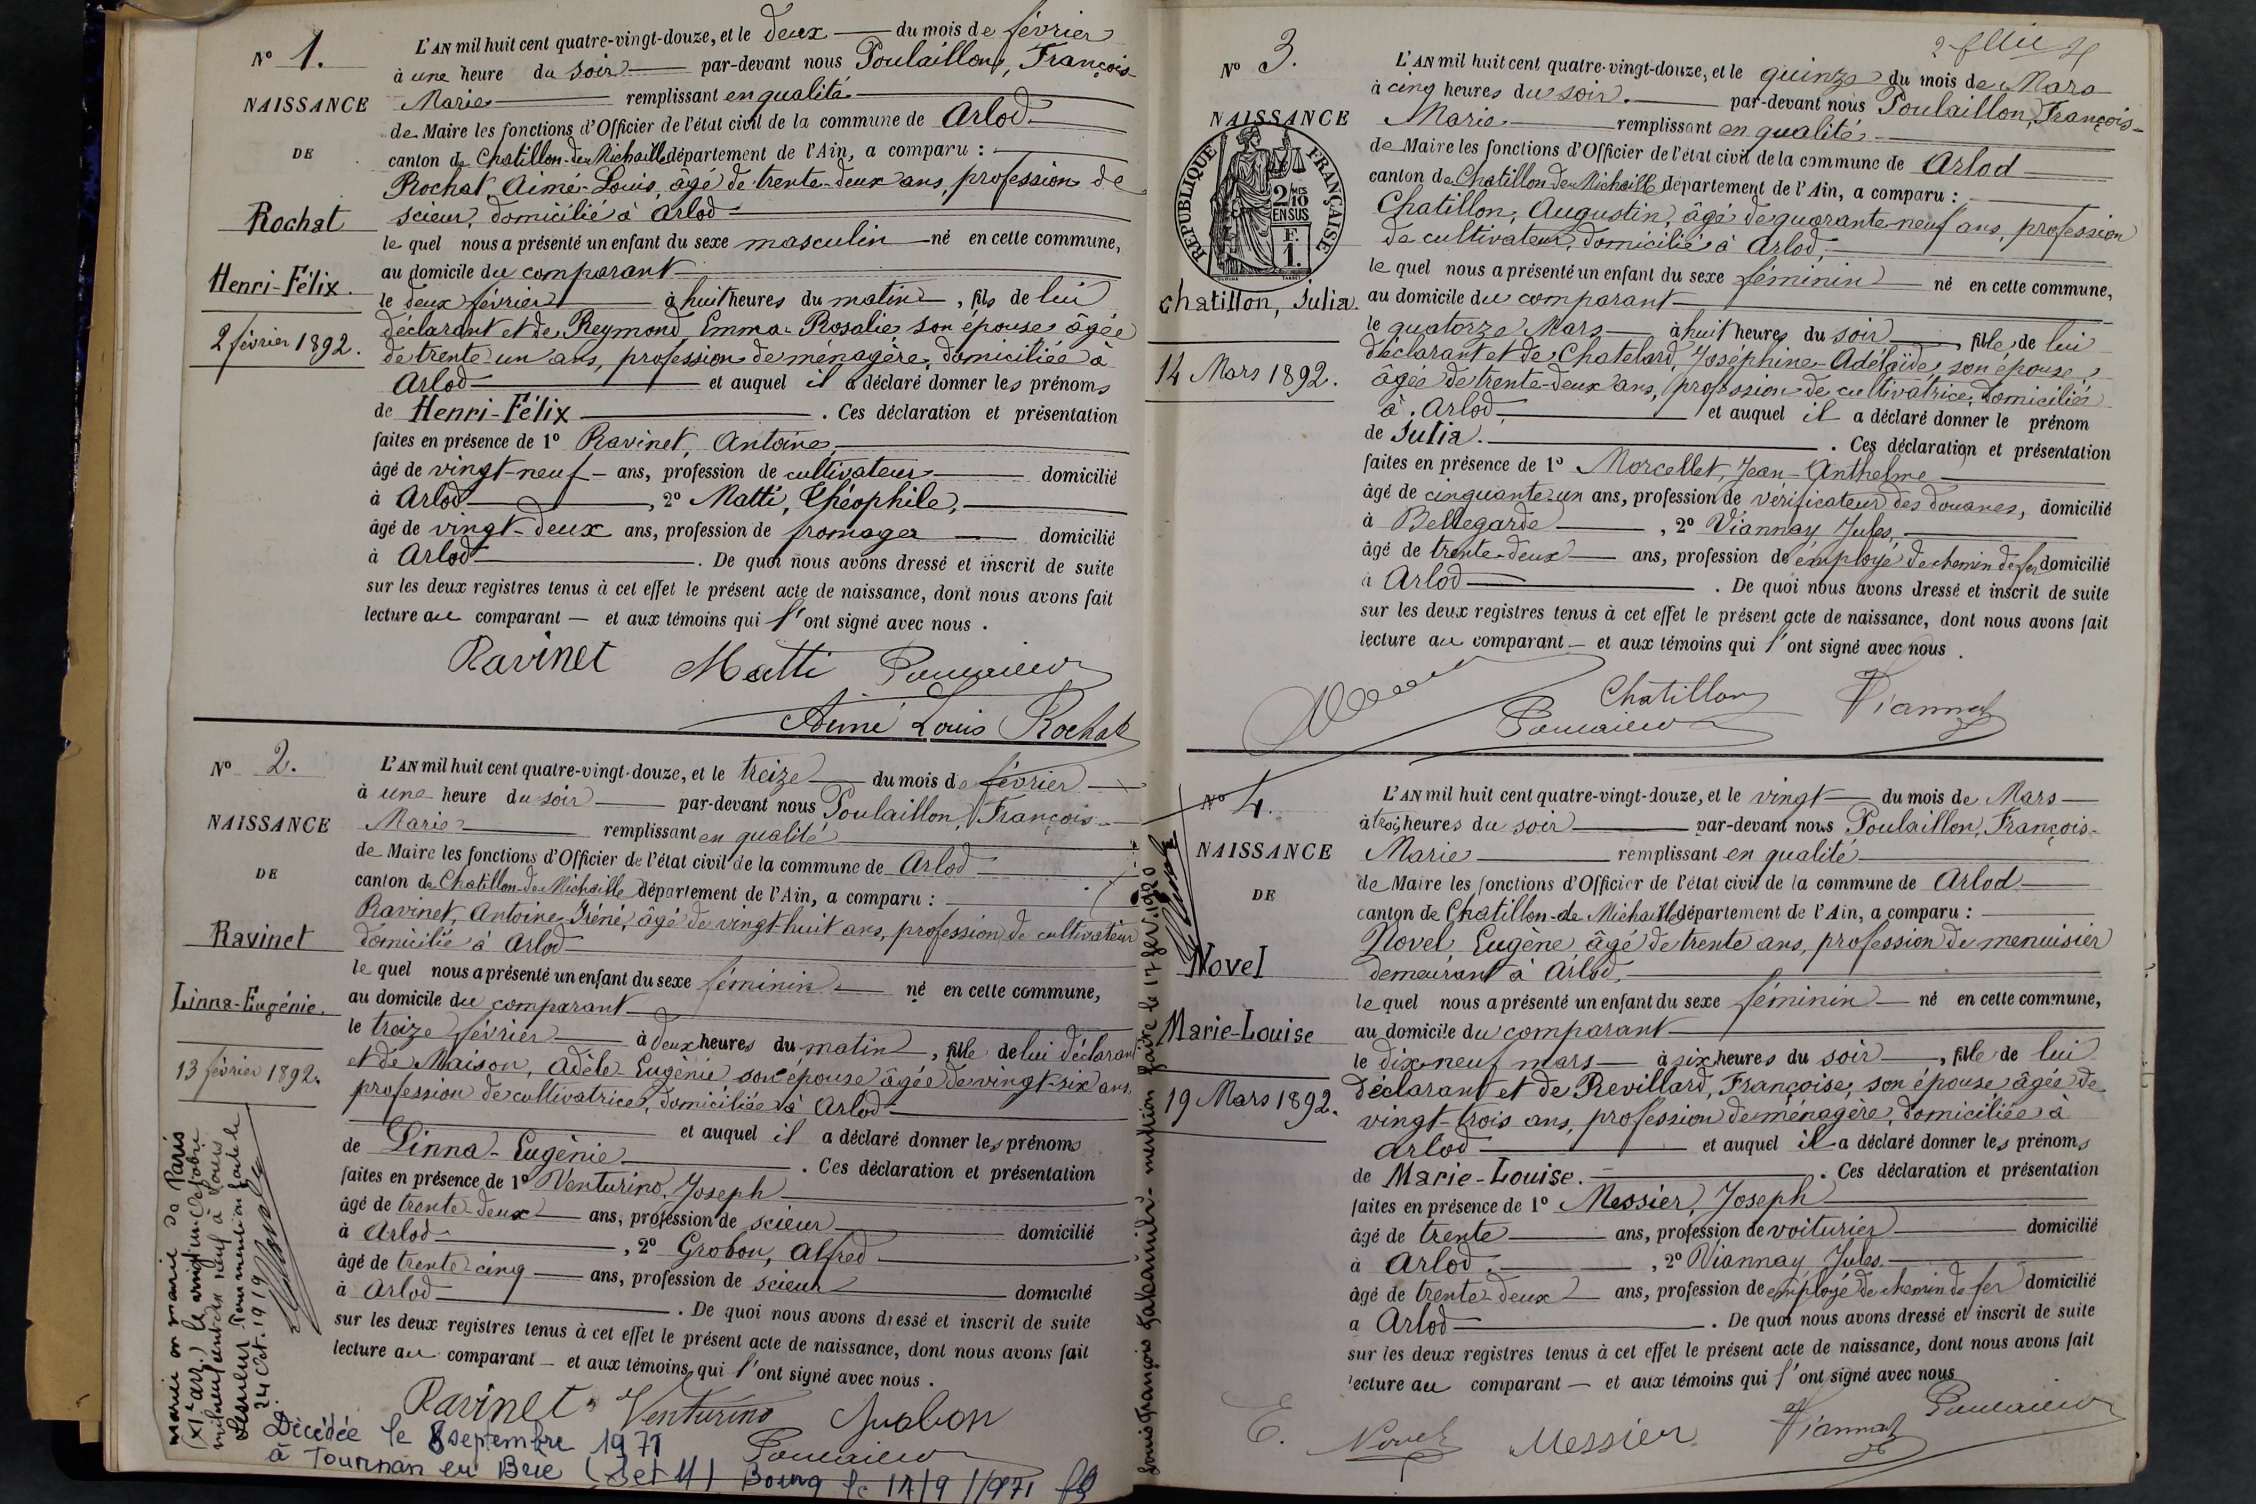 N° 1.
NAISSANCE
DE
Rochat
Henri-Félix.
2 février 1892.
L'AN mil huit cent quatre-vingt-douze, et le deux du mois de février
à une heure du soir par-devant nous Poulaillon, François-
Marie remplissant en qualité
de Maire les fonctions d'Officier de l'état civil de la commune de Arlod
canton de Chatillon-de-Michaille département de l'Ain, a comparu :
Rochat Aimé-Louis, âgé de trente-deux ans, profession de
scieur, domicilié à Arlod
le quel nous a présenté un enfant du sexe masculin né en cette commune,
au domicile du comparant
le deux février à huit heures du matin, fils de lui
déclarant et de Reymond Emma-Rosalie son épouse âgée
de trente un ans, profession de ménagère, domiciliée à
Arlod et auquel il a déclaré donner les prénoms
de Henri-Félix. Ces déclaration et présentation
faites en présence de 1° Ravinet, Antoine,
âgé de vingt-neuf ans, profession de cultivateur domicilié
à Arlod, 2° Matti, Théophile,
âgé de vingt-deux ans, profession de fromager domicilié
à Arlod. De quoi nous avons dressé et inscrit de suite
sur les deux registres tenus à cet effet le présent acte de naissance, dont nous avons fait
lecture au comparant — et aux témoins qui l'ont signé avec nous.
Ravinet Matti
Aimé Louis Rochat
N° 2.
NAISSANCE
DE
Ravinet
Linna-Eugénie.
13 février 1892.
L'AN mil huit cent quatre-vingt-douze, et le treize du mois de février
à une heure du soir par-devant nous Poulaillon, François-
Marie remplissant en qualité
de Maire les fonctions d'Officier de l'état civil de la commune de Arlod
canton de Chatillon-de-Michaille département de l'Ain, a comparu :
Ravinet, Antoine Iréné, âgé de vingt-huit ans, profession de cultivateur
domicilié à Arlod
le quel nous a présenté un enfant du sexe féminin né en cette commune,
au domicile du comparant
le treize février à deux heures du matin, fille de lui déclarant
et de Maison, Adèle Eugénie son épouse âgée de vingt-six ans,
profession de cultivatrice, domiciliée à Arlod
et auquel il a déclaré donner les prénoms
de Linna-Eugénie. Ces déclaration et présentation
faites en présence de 1° Venturino, Joseph
âgé de trente-deux ans, profession de scieur domicilié
à Arlod, 2° Grobon, Alfred
âgé de trente-cinq ans, profession de scieur domicilié
à Arlod. De quoi nous avons dressé et inscrit de suite
sur les deux registres tenus à cet effet le présent acte de naissance, dont nous avons fait
lecture au comparant — et aux témoins qui l'ont signé avec nous.
Ravinet Venturino Grobon
Mariée en mairie de Paris
(XIe arr.) le vingt un Octobre
mil neuf cent dix neuf à Louis
Lesueur Pour mention faite le
24 Oct. 1919
Décédée le 8 septembre 1971
à Tournan en Brie (S et M) Bourg le 17/9/1971
N° 3.
NAISSANCE
RÉPUBLIQUE FRANÇAISE
2/10
EN SUS
F.
1.
Chatillon, Julia.
14 Mars 1892.
L'AN mil huit cent quatre-vingt-douze, et le quinze du mois de Mars
à cinq heures du soir. par-devant nous Poulaillon, François-
Marie remplissant en qualité
de Maire les fonctions d'Officier de l'état civil de la commune de Arlod
canton de Chatillon de Michaille département de l'Ain, a comparu :
Chatillon, Augustin, âgé de quarante-neuf ans, profession
de cultivateur, domicilié à Arlod,
le quel nous a présenté un enfant du sexe féminin né en cette commune,
au domicile du comparant
le quatorze Mars à huit heures du soir, fille de lui
déclarant et de Chatelard, Joséphine-Adélaïde, son épouse,
âgée de trente-deux ans, profession de cultivatrice, domiciliés
à Arlod et auquel il a déclaré donner le prénom
de Julia. Ces déclaration et présentation
faites en présence de 1° Morcellet, Jean-Anthelme
âgé de cinquante-un ans, profession de vérificateur des douanes, domicilié
à Bellegarde, 2° Viannay, Jules,
âgé de trente-deux ans, profession de employé de chemin de fer domicilié
à Arlod. De quoi nous avons dressé et inscrit de suite
sur les deux registres tenus à cet effet le présent acte de naissance, dont nous avons fait
lecture au comparant — et aux témoins qui l'ont signé avec nous.
Chatillon Viannay
N° 4.
NAISSANCE
DE
Novel
Marie-Louise
19 Mars 1892.
L'AN mil huit cent quatre-vingt-douze, et le vingt du mois de Mars
à trois heures du soir par-devant nous Poulaillon, François-
Marie remplissant en qualité
de Maire les fonctions d'Officier de l'état civil de la commune de Arlod
canton de Chatillon-de Michaille département de l'Ain, a comparu :
Novel Eugène âgé de trente ans, profession de menuisier
demeurant à Arlod,
le quel nous a présenté un enfant du sexe féminin né en cette commune,
au domicile du comparant
le dix-neuf mars à six heures du soir, fille de lui
déclarant et de Revillard, Françoise, son épouse âgée de
vingt-trois ans, profession de ménagère, domiciliée à
Arlod et auquel il a déclaré donner les prénoms
de Marie-Louise. Ces déclaration et présentation
faites en présence de 1° Messier, Joseph
âgé de trente ans, profession de voiturier domicilié
à Arlod, 2° Viannay, Jules
âgé de trente-deux ans, profession de employé de chemin de fer domicilié
à Arlod. De quoi nous avons dressé et inscrit de suite
sur les deux registres tenus à cet effet le présent acte de naissance, dont nous avons fait
lecture au comparant — et aux témoins qui l'ont signé avec nous
E. Novel Messier Viannay